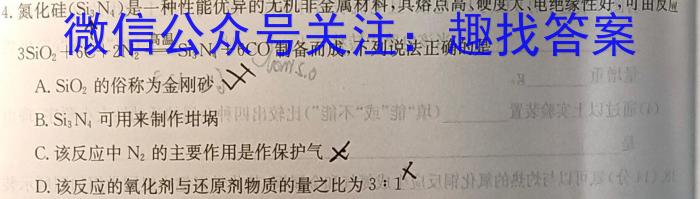 4. 氮化硅(Si₃N₄)是一种性能优异的无机非金属材料,其熔点高、硬度大、电绝缘性好,可由反应
3SiO₂+6C+2N₂ 高温 Si₃N₄+6CO 制备而成,下列说法正确的是
微信公众号关注：趣找答案
A. SiO₂ 的俗称为金刚砂
B. Si₃N₄ 可用来制作坩埚
C. 该反应中 N₂ 的主要作用是作保护气
D. 该反应的氧化剂与还原剂物质的量之比为 3∶1